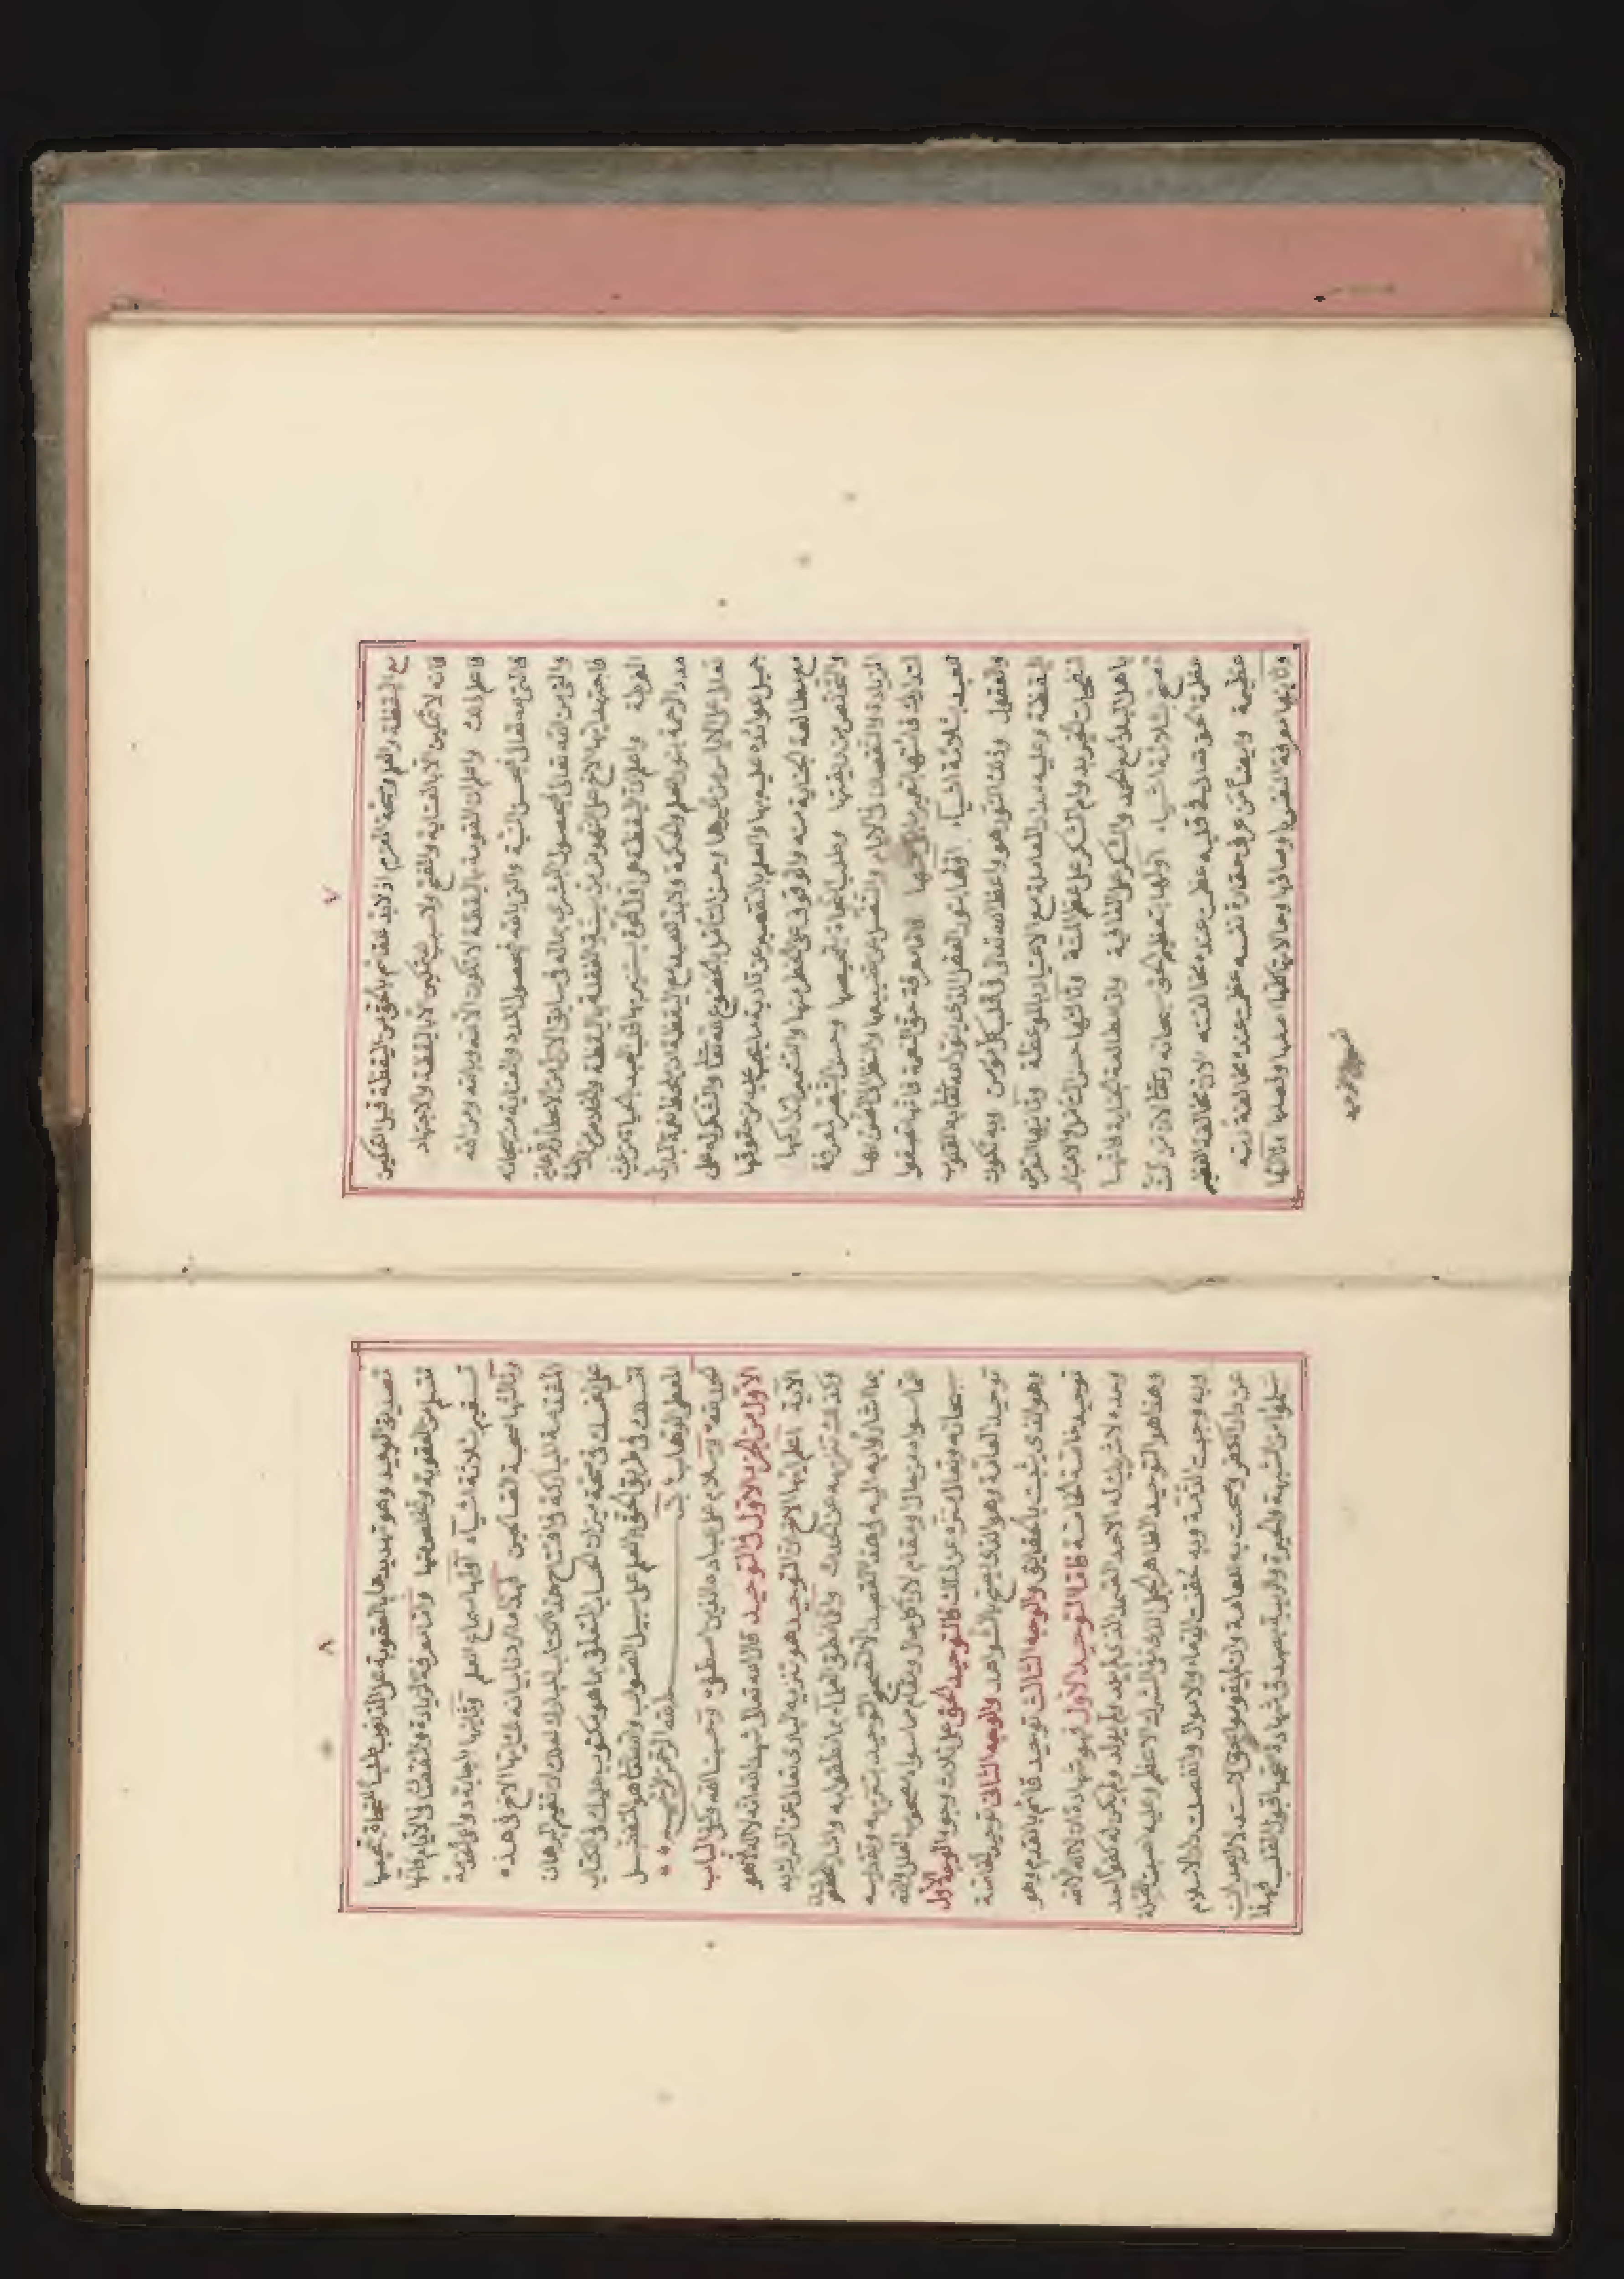 ٧
مع اليقظة والعلم وصحة العزم اذ لابد عقائم بالحق من اليقظة قبل التمكين
فانه لا تمكين الا بالعناية والفتح ولا سبب للتمكين الا باليقظة والاجتهاد
فاعلم ذلك واعلم ان القومة باليقظة لا تكون الا لله وبالله ومن الله
فالتي لله تعالى بحسن النية والتي بالله بحصول المدد والعناية من سبحانه
والتي من الله تعالى بحصول البشرى بماله في سابق الازل من الاعطاء
فاجتهد ايها الاخ على النهوض من سنة الغفلة باليقظة والخلاص من
الفرطة واعلم ان اليقظة هي اول قلب العبد بالحياة من غيث
مدد الرحمة بنور العلم والحكمة ولابد للعبد مع اليقظة ان يلحظ نعمة البارئ
تعالى مع الاياس من غيرها وحسن التأمل بالخضوع لله تعالى والشكر له على
جميل عوائده عليه بها والعلم بالتقصير عن تادية ما يجب عليه من حقوقها
مع مطالعة الجناية منه والوقوف على الخطر منها والتشمير لتداركها
والتخلص من ربقتها وطلب النجاة بتمحيصها وحسن التبصر لمعرفة
الزيادة والنقصان في الايام والتنصل عن تضييعها والنظر الى الضن بها
لتدارك فائتها وتعمير باقيها فاما معرفة حق النعمة فانها تصفوا
للعبد بثلاثة اشياء اولها بنور العقل الذي ينور الله تعالى به القلوب
والعقول وذلك النور هو واعظ الله تعالى في قلب كل مؤمن وبه تكون
اليقظة وعليه مدار المعاملة مع الاعتبار بالموعظة وثانيها التعرض
لنفحات التجريد ودوام الشكر على عظم المنة وثالثها حسن التأمل والاعتبار
باهل البلاء مع الحمد والشكر على العافية واما مطالعة الجناية فانها
تصح بثلاثة اشياء اولها بتعظيم الحق سبحانه وتعالى لان من كملت
عظمة الحق تعالى في قلبه عظمت عنده مخالفته لان مخالفة العظيم
عظيمة وايضا من عرف حقارة نفسه عظمت عنده مخالفة ربه
وثانيها معرفة النفس واوصافها وحالاتها كلها اصلها وفصلها وثالثها
٨
تصديق الوعيد وهو تهديدها بالعقوبة على الذنوب طلبا للنجاة بتمحيصها
لتسلم من العقوبة وتخلص منها واما معرفة الزيادة والنقصان في الايام فانها
تستقيم بثلاثة اشياء اولها سماع العلم وثانيها اجابة دواعي الحرمة
وثالثها صحبة الصالحين فهذا ما اردنا بيانه لك ايها الاخ في هذه
المقدمة المباركة في افتتاح هذا الكتاب المبارك لعلك ان تقيم البرهان
على نفسك في صحة ميزان الحساب المتعلق بما هو مكتوب عليك في الكتاب
لتسلك في طريق الحق والعلم على سبيل الصواب والله تعالى هو المتفضل
المعطي الوهاب
بسم الله الرحمن الرحيم
الحمد لله وسلام على عباده الذين اصطفى وحسبنا الله وكفى الباب
الاول من الجزء الاول في التوحيد قال الله تعالى شهد الله انه لا اله الا هو
الآية اعلم ايها الاخ ان التوحيد هو تنزيه البارئ تعالى عن الشريك
وكذلك تنزيهه عن الحدث وانما نطق العلماء بما نطقوا به واشار المحققون
بما اشاروا به اليه في هذا القصد لتصحيح التوحيد بتنزيهه وتقديسه
عما سواه من حال ومقام لان كل حال ومقام مما سواه مصحوب العلل والله
سبحانه وتعالى منزه عن ذلك فالتوحيد للحق على ثلاث وجوه الوجه الاول
توحيد العامة وهو الذي يصح بالشواهد والوجه الثاني توحيد الخاصة
وهو الذي يثبت بالحقائق والوجه الثالث توحيد قائم بالقدم وهو
توحيد خاصة الخاصة فاما التوحيد الاول فهو شهادة ان لا اله الا الله
وحده لا شريك له الاحد الصمد الذي لم يلد ولم يولد ولم يكن له كفوا احد
وهذا هو التوحيد الظاهر الجلي الذي نفى الشرك الاعظم وعليه نصبت القبلة
وبه وجبت الذمة وبه حقنت الدماء والاموال وانفصلت دار الاسلام
عن دار الكفر وصحت به الملة للعامة وان لم يقوموا بحق الاستدلال بعد ان
سلموا من الشبهة والحيرة والريبة بصدق شهادة صححها قبول القلب فهذا